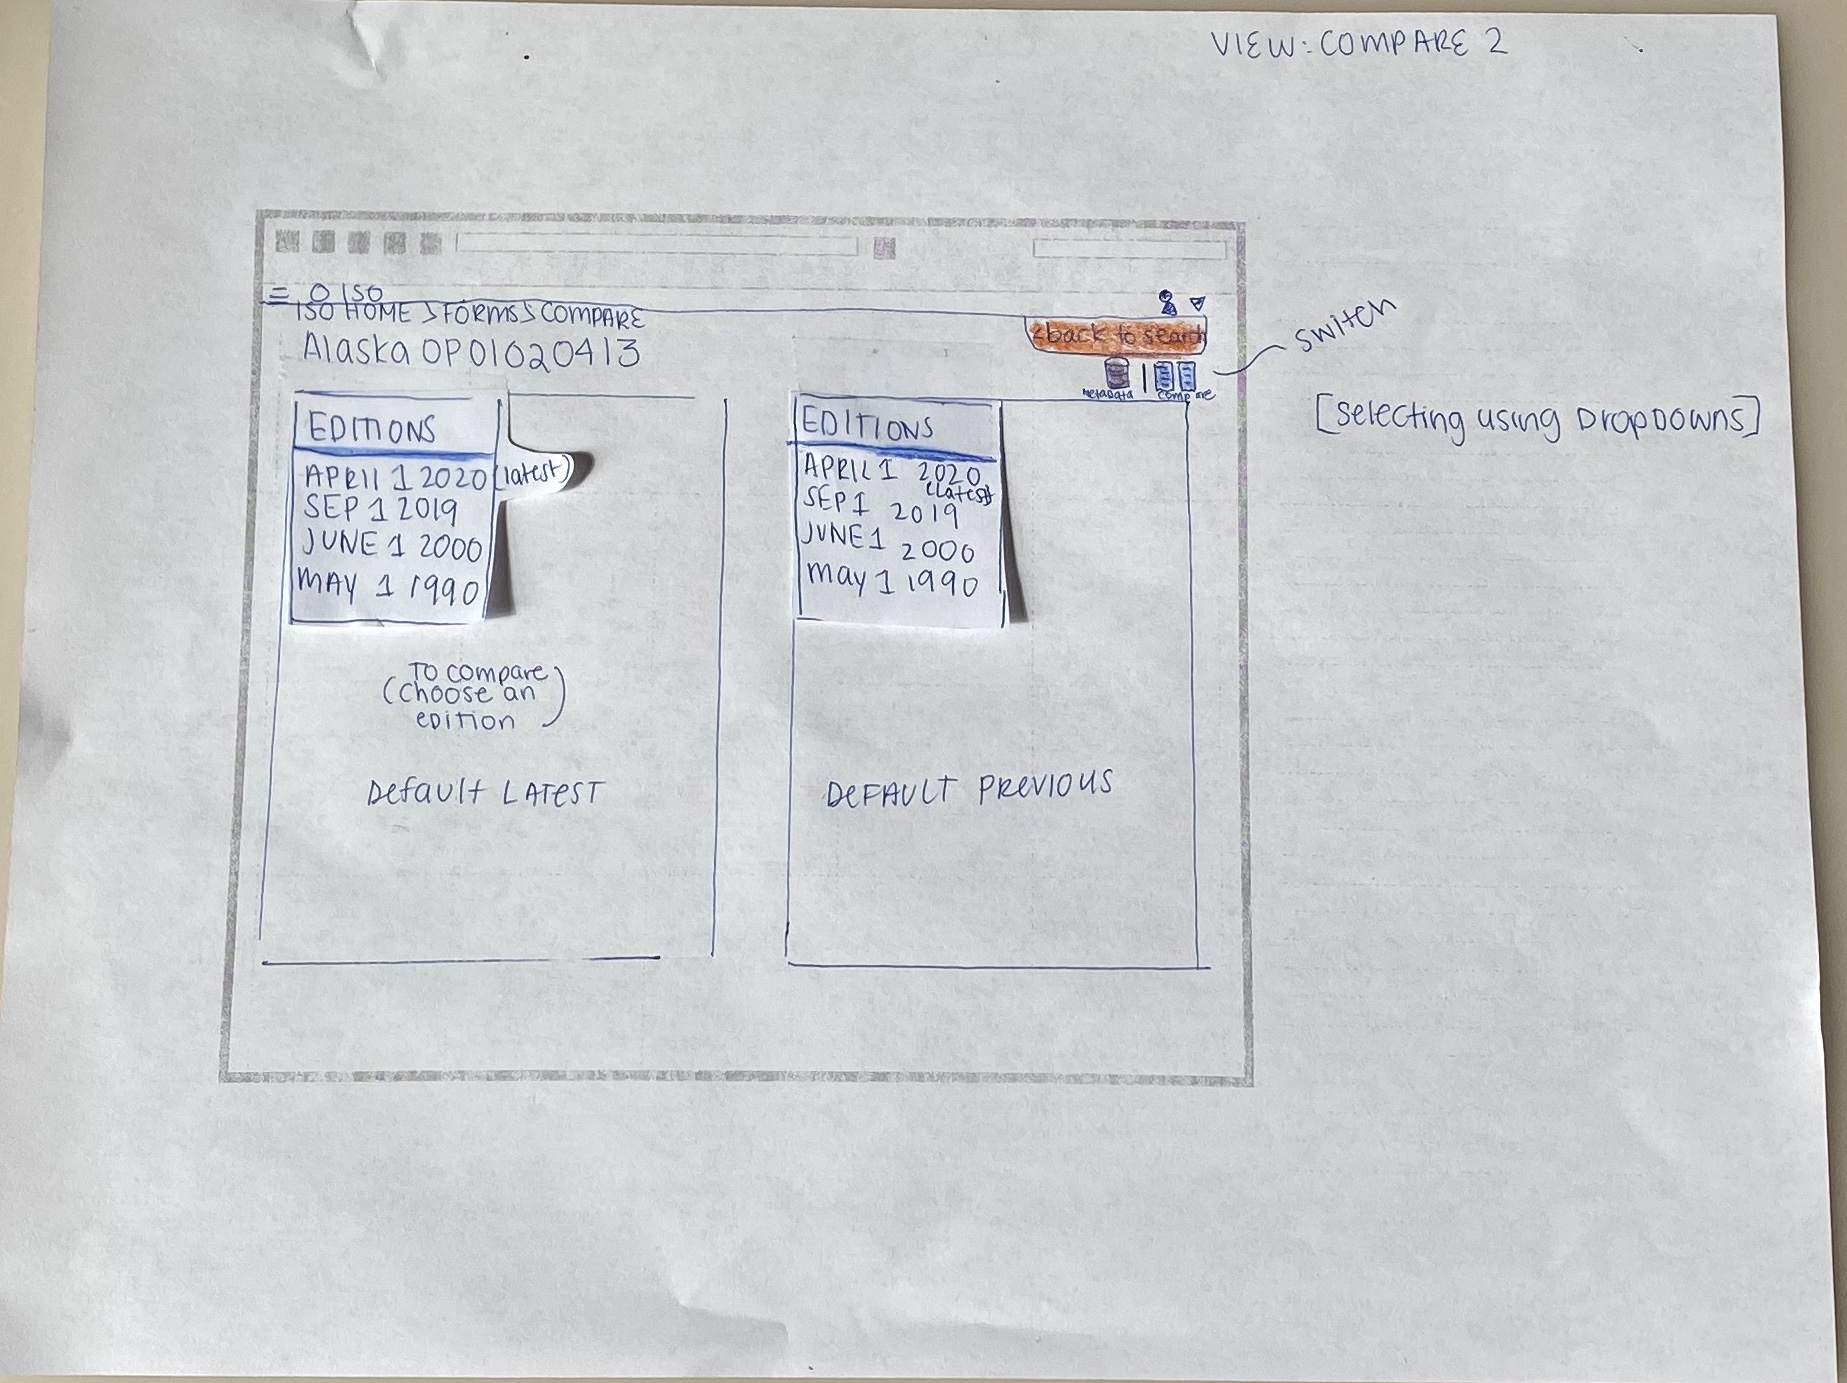 VIEW: COMPARE 2
= O ISO
ISO HOME > FORMS > COMPARE
<back to search
Alaska OP01020413
switch
metadata | compare
[selecting using DropDowns]
EDITIONS
APRIL 1 2020 (latest)
SEP 1 2019
JUNE 1 2000
MAY 1 1990
To compare
(choose an
edition)
Default LATEST
EDITIONS
APRIL 1 2020
(Latest)
SEP 1 2019
JUNE 1 2000
may 1 1990
DEFAULT PREVIOUS